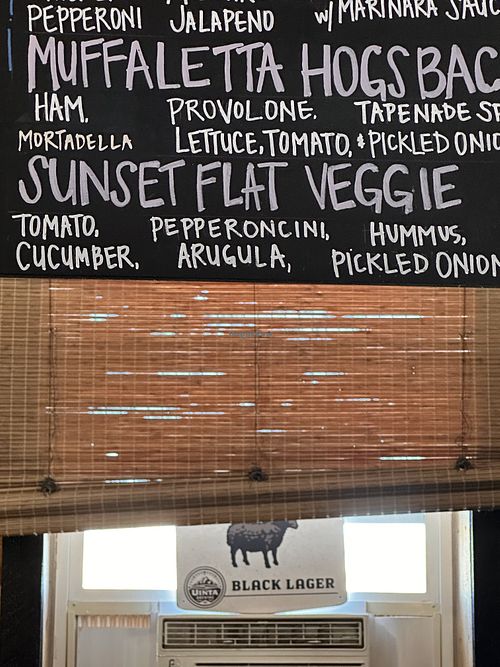 PEPPERONI JALAPENO w/ MARINARA SAUC
MUFFALETTA HOGSBAC
HAM, PROVOLONE, TAPENADE SP
MORTADELLA LETTUCE, TOMATO, & PICKLED ONIO
SUNSET FLAT VEGGIE
TOMATO, PEPPERONCINI, HUMMUS,
CUCUMBER, ARUGULA, PICKLED ONION
BLACK LAGER
UINTA
BREWING